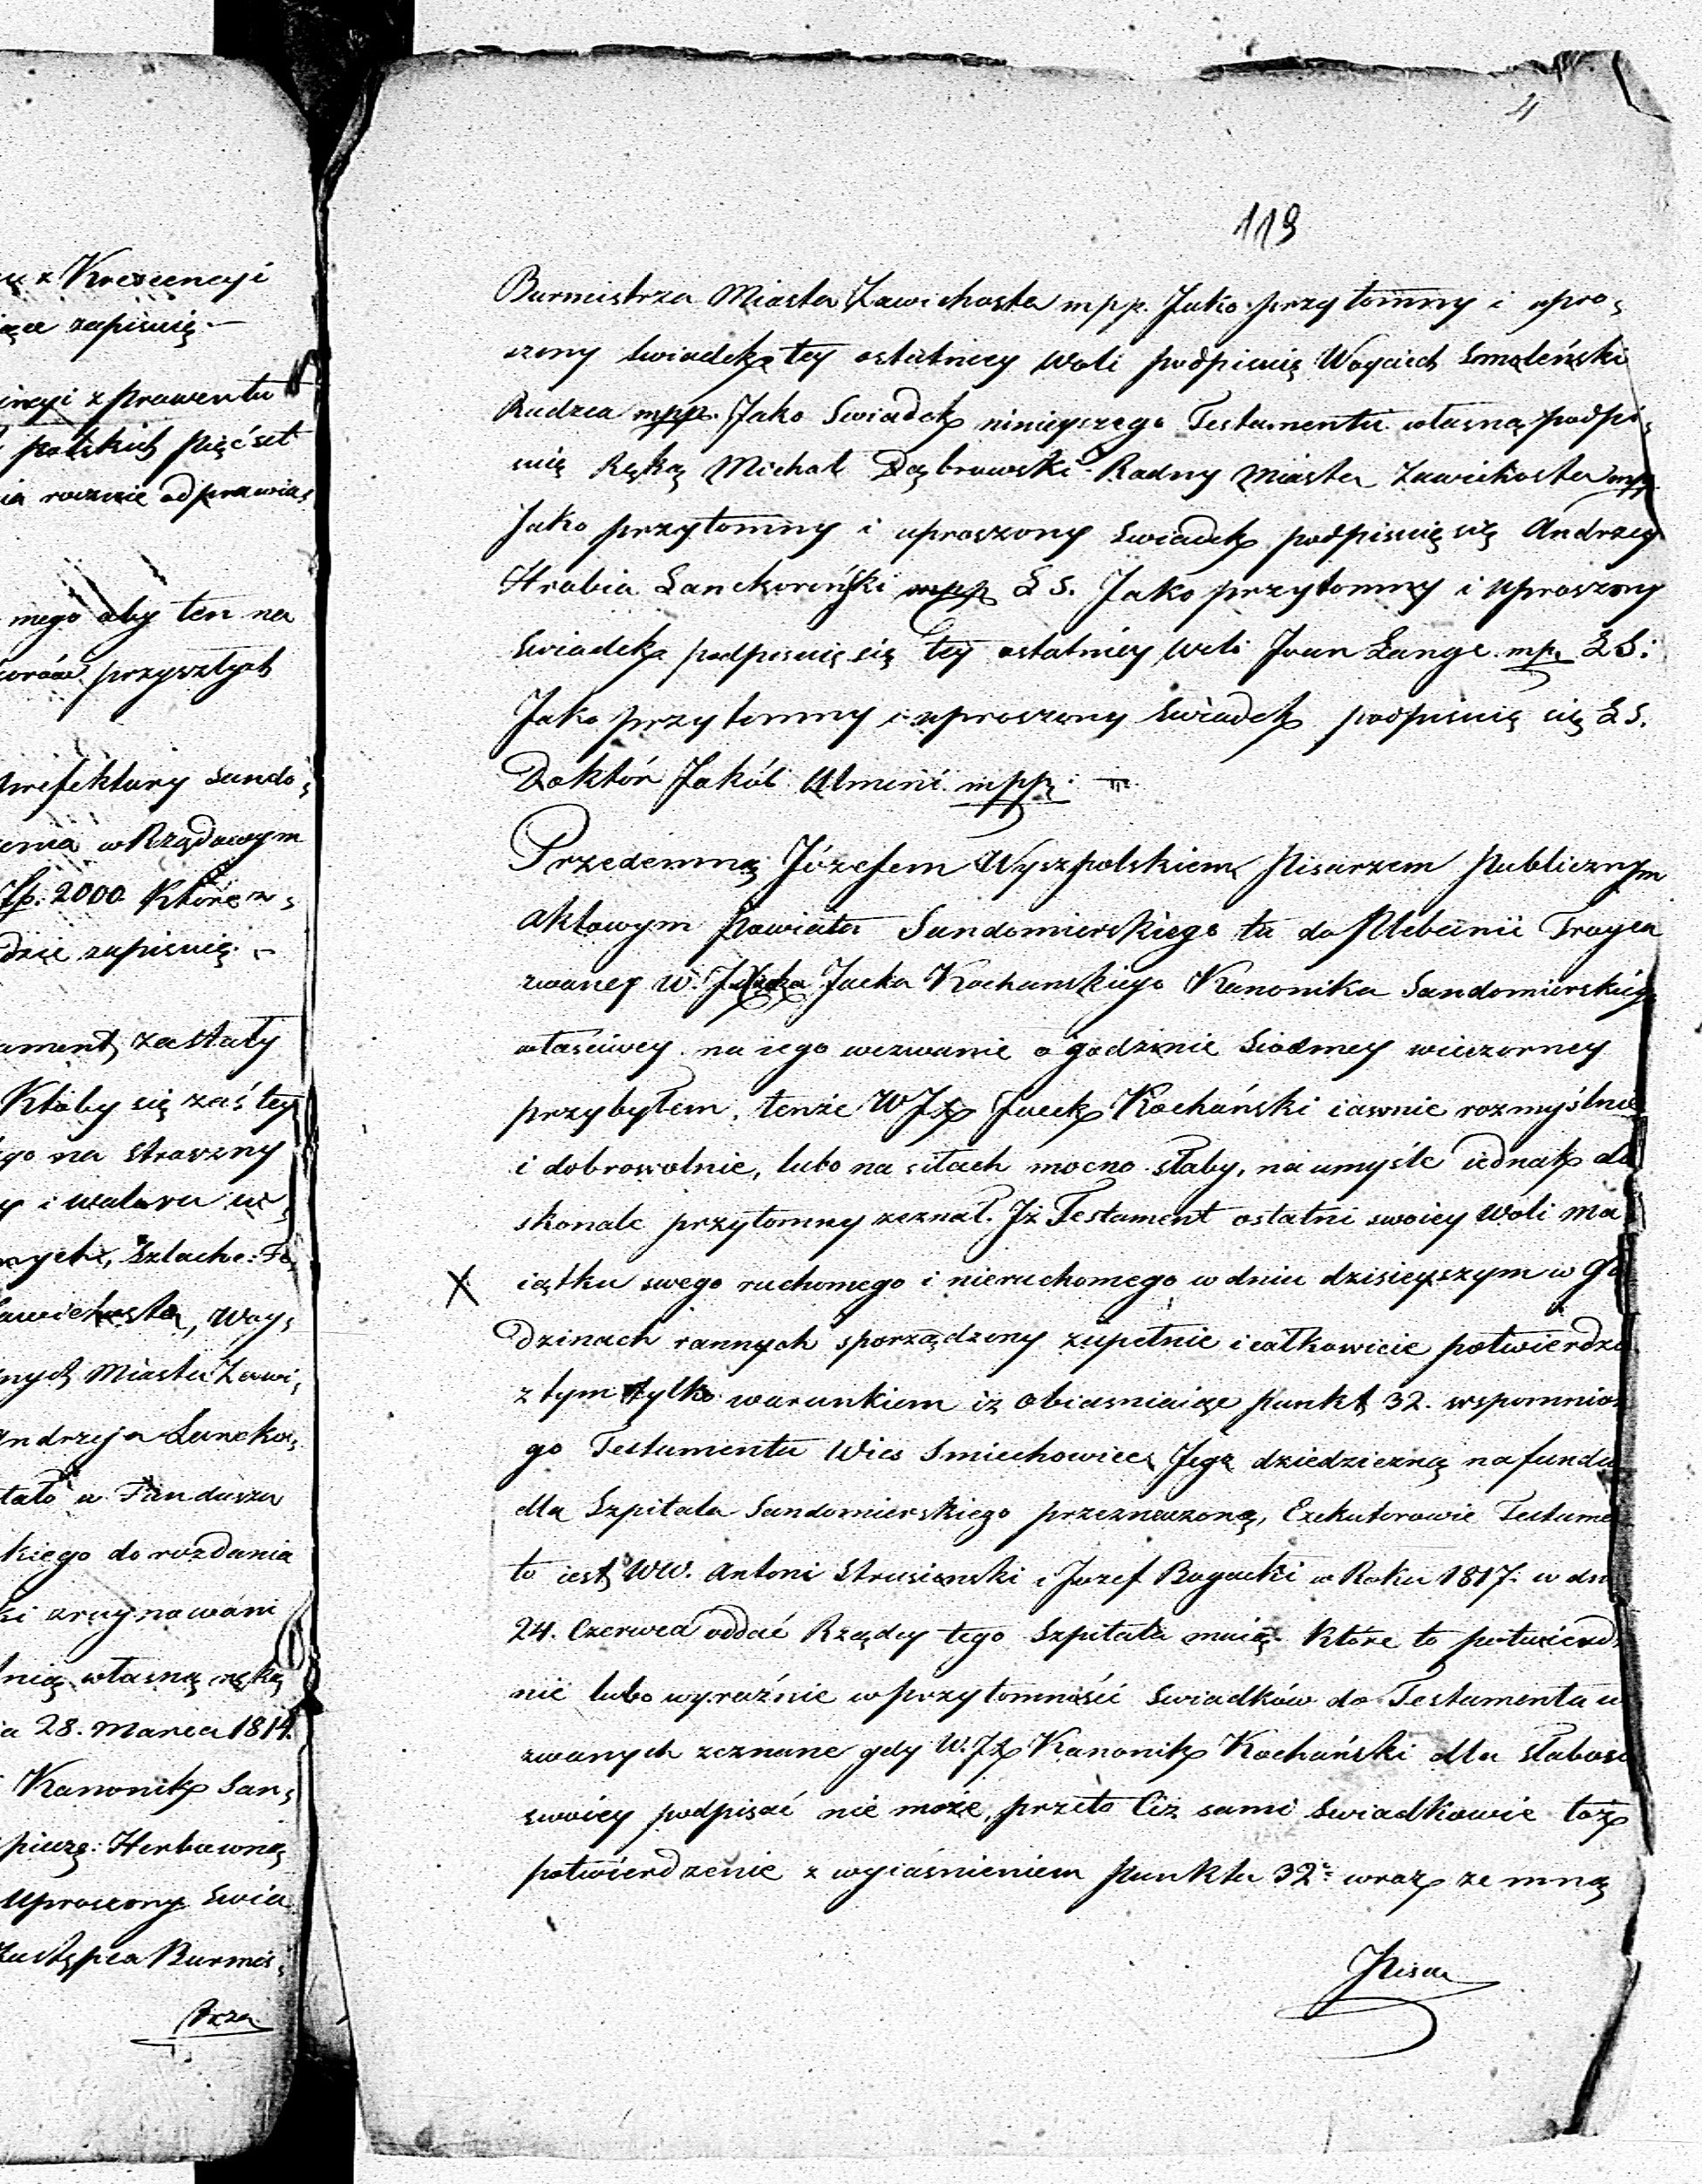 z Krescencyi
zapisuię. —
z prowentu
polskich pięćset
rocznie odprawia,
mego aby ten na
przyszłych
Prefektury Sando,
w Rządowym
2000 Które
zapisuię. —
zostały
Ktoby się zaś tey
na straszny
i waloru
Szlache:
Zawichosta, Woy,
Miasta Zawi,
Andrzeja Lancko,
a Fundusza
do rozdania
zruynowani
własną ręką
28. Marca 1814.
Kanonik San,
Herbowną
Uproszony Swia
Zastępca Burmi,
strza
4
119
Burmistrza Miasta Zawichosta mpp. Jako przytomny i upro,
szony swiadek tey ostatniey woli podpisuię Woyciech Smoleński
Radzca mpp. Jako Swiadek ninieyszego Testamentu własną podpi,
suię Ręką Michał Dąbrowski Radny Miasta Zawichosta mp.
Jako przytomny i uproszony swiadek podpisuię się Andrzey
Hrabia Lanckoroński mpp LS. Jako przytomny i uproszony
Swiadek podpisuię się tey ostatniey woli Jvan Lange mp. LS.
Jako przytomny i uproszony swiadek podpisuię się LS.
Doktór Jakób mpp.
Przedemną Józefem Wyszpolskiem Pisarzem Publicznym
aktowym Powiatu Sandomierskiego tu do Plebanii Troyca
zwaney W. Jacka Kochanskiego Kanonika Sandomierskieg
własciwey na iego wezwanie o godzinie siodmey wieczorney
przybyłem, tenże WJX Jacek Kochański iawnie rozmyślnie
i dobrowolnie, lubo na siłach mocno słaby, na umyśle iednak do
skonale przytomny zeznał. Jż Testament ostatni swoiey woli ma
X iątku swego ruchomego i nieruchomego w dniu dzisieyszym w go
dzinach rannych sporządzony zupełnie i całkowicie potwierdza
z tym tylko warunkiem iż obiasniaiąc punkt 32. wspomnio
go Testamentu Wies Smiechowice Jego dziedziczną na fundu
dla Szpitala Sandomierskiego przeznaczoną, Exekutorowie Testame
to iest WW. Antoni Strusienski i Jozef Bogucki w Roku 1817. w dn
24. Czerwca oddać Rządcy tego Szpitala maią. Które to potwierd
nie lubo wyraźnie w przytomność swiadków do Testamentu u
zwanych zeznane gdy W. JX Kanonik Kochański dla słabosc
swoiey podpisać nie może, przeto Ciż sami swiadkowie toż
potwierdzenie z wyiaśnieniem punktu 32º wraz ze mną
Pisa